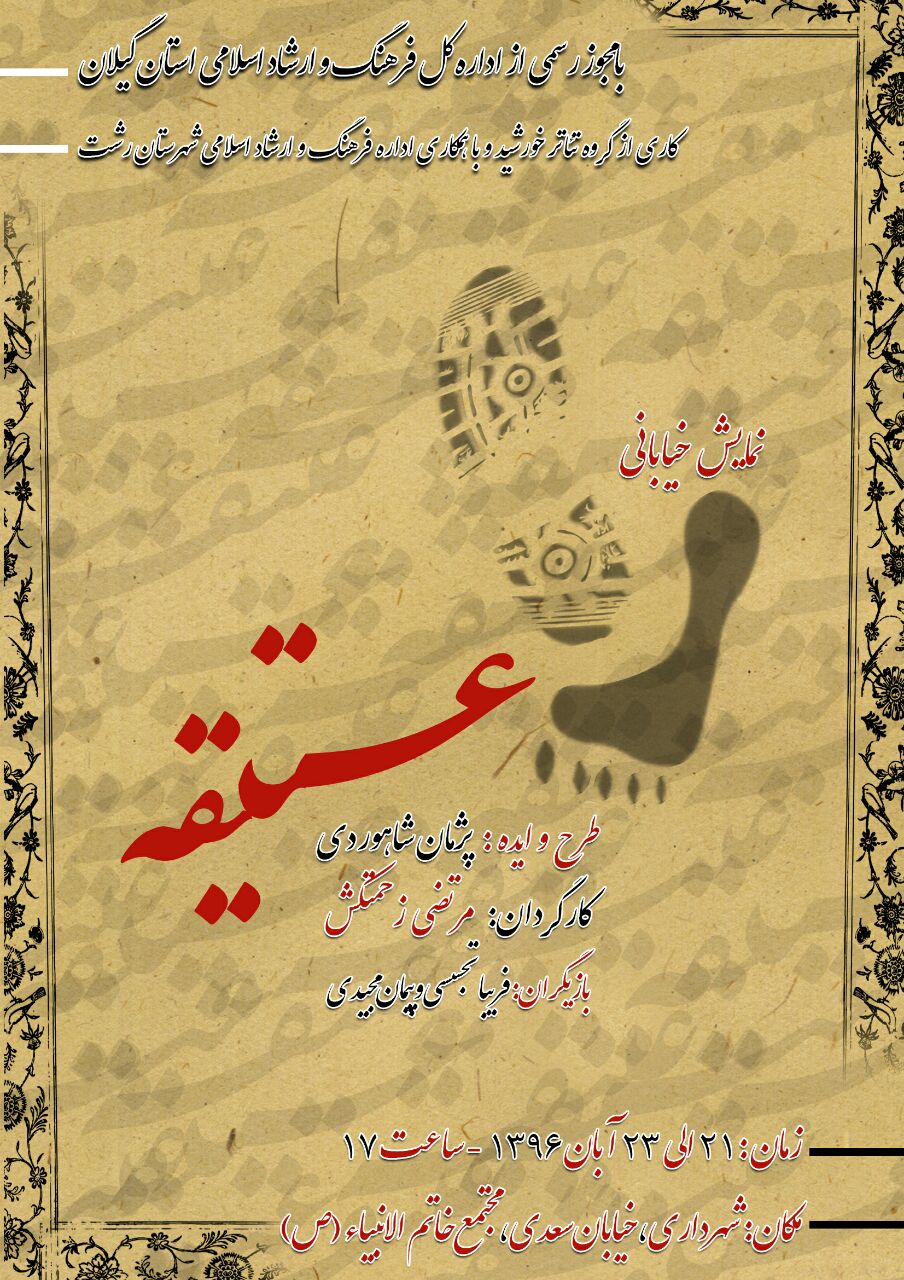 با مجوز رسمی از اداره کل فرهنگ و ارشاد اسلامی استان گیلان
کاری از گروه تئاتر خورشید و با همکاری اداره فرهنگ و ارشاد اسلامی شهرستان رشت
نمایش خیابانی
عتیقه
طرح و ایده : پژمان شاهوردی
کارگردان: مرتضی زحمتکش
بازیگران: فریبا تجسسی و پیمان مجیدی
زمان: ۲۱ الی ۲۳ آبان ۱۳۹۶ - ساعت ۱۷
مکان: شهرداری، خیابان سعدی، مجتمع خاتم الانبیاء (ص)